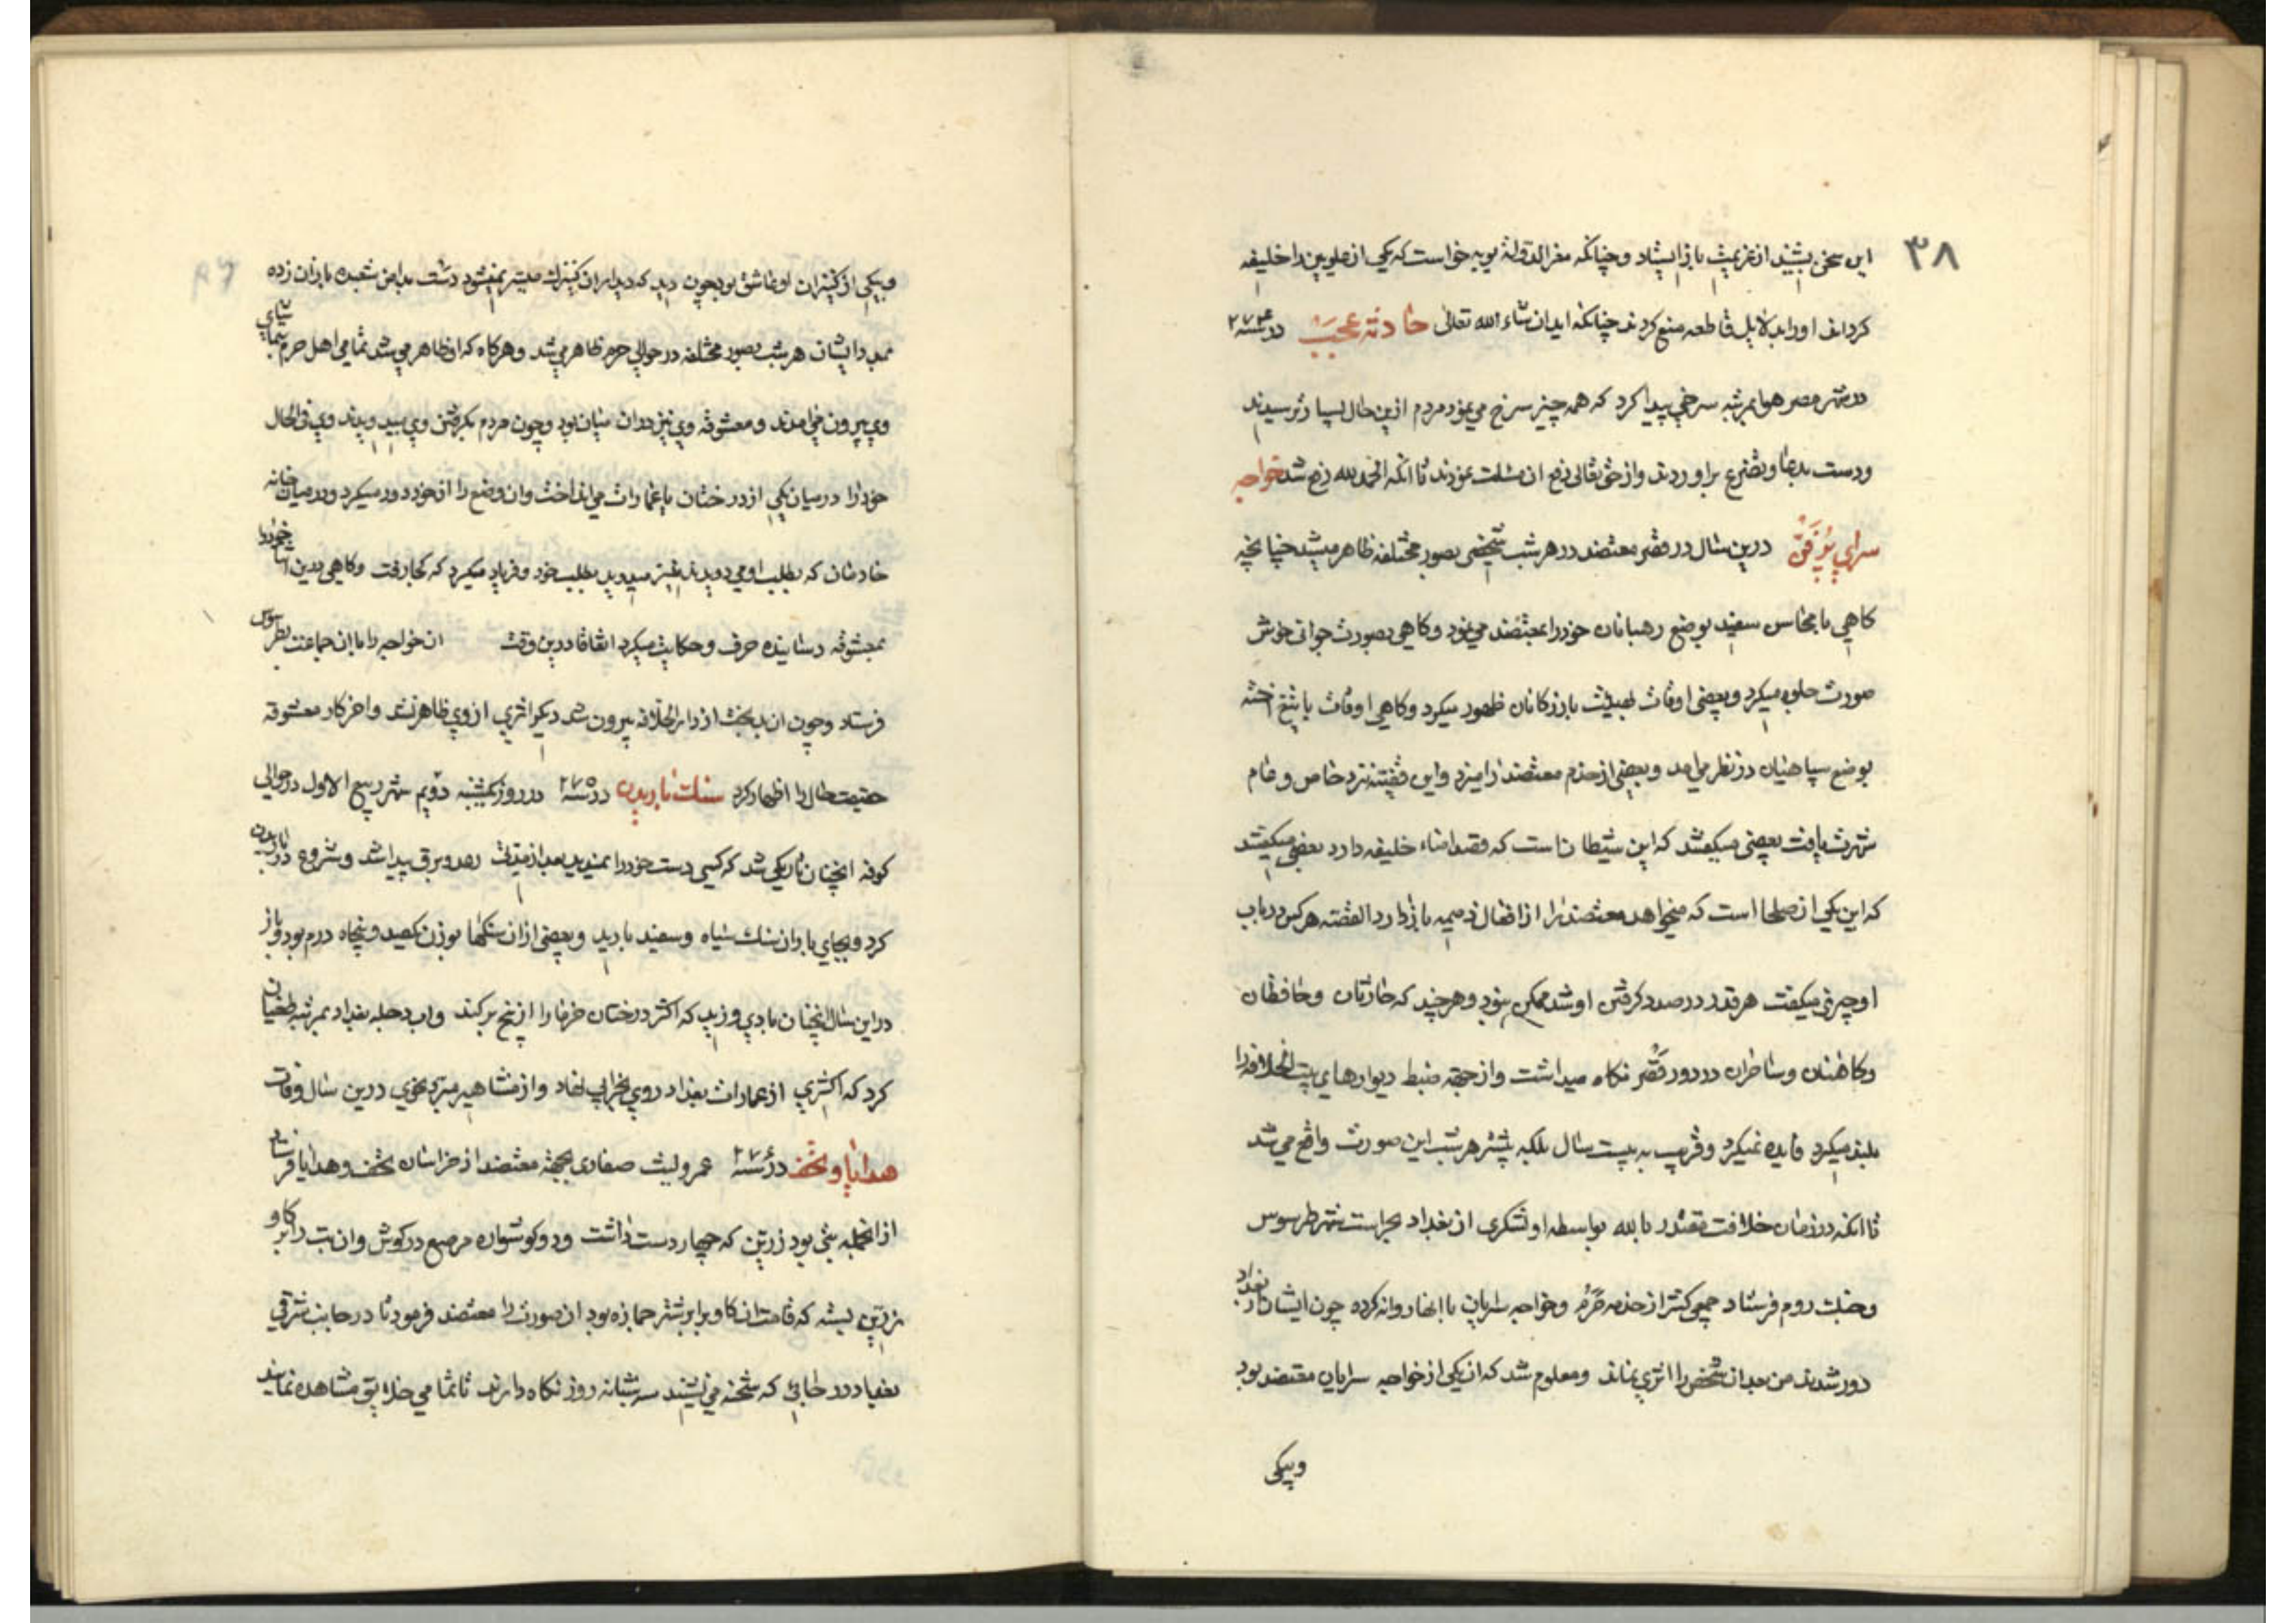 ۳۸
این سخن بشنید از عزیمت باز ایستاد و چنانکه معز الدوله بویه خواست که یکی از علویین را خلیفه
کرداند او را بدلایل قاطعه منع کردند چنانکه ایدان شاء الله تعالی حادثه عجیب در سنه ۲۷۴
در شهر مصر هوا بمرتبه سرخی پیدا کرد که همه چیز سرخ می نمود مردم ازین حال بسیار ترسیدند
و دست بدعا و تضرع براوردند و از حق تعالی رفع ان مسئلت نمودند تا انکه الحمد لله رفع شد خواجه
سرای درین سال در قصر معتضد در هر شب شخصی بصور مختلفه ظاهر میشد چنانچه
کاهی با محاسن سفید بوضع رهبانان خود را بمعتضد می نمود و کاهی بصورت جوانی خوش
صورت جلوه میکرد و بعضی اوقات بازرکانان ظهور میکرد و کاهی اوقات با تیغ اخته
بوضع سپاهیان در نظر می امد و بعضی از خدم معتضد را میزد و این قضیه نزد خاص و عام
شهرت یافت بعضی میکفتند که این شیطانست که قصد خلیفه دارد بعضی میکفتند
که این یکی از صلحا است که میخواهد معتضد را از افعال ذمیمه باز دارد القصه هر کس در باب
او چیزی میکفت هر قدر در صدد کرفتن او شد ممکن نبود و هر چند که حارثان و حافظان
و کاهنان و ساحران در دور قصر نکاه میداشت و از جهة ضبط دیوارهای بیت الخلافه را
بلند میکرد فایده نمیکرد و قریب به بیست سال بلکه بیشتر هر شب این صورت واقع می شد
تا انکه در زمان خلافت مقتدر بالله بواسطه او لشکری از بغداد بحراست شهر طرسوس
و جنک روم فرستاد جمعی کثیر از خدمه حرم و خواجه سرایان با انها روانه کرده چون ایشان از بغداد
دور شدند من بعد ان شخص را اثری نماند و معلوم شد که ان یکی از خواجه سرایان مقتضد بود
وبیکی
وبیکی از کنیزان او عاشق بود چون دید که دیدار ان کنیزک میسر نمیشود دست بدامن شعبده بازان زده
بمدد ایشان هر شب بصور مختلفه در حوالی حرم ظاهر می شد و هر کاه که او ظاهر می شد تمامی اهل حرم بتماشای
وی بیرون می امدند و معشوقه وی نیز در ان میان بود و چون مردم بکرفتن وی میدویدند وی فی الحال
خود را در میان یکی از درختان یا عمارات می انداخت و ان وضع را از خود دور میکرد و در میان خانه
خادمان که بطلب او می دویدند نیز میدوید بطلب خود و فریاد میکرد که کجا رفت و کاهی بدین خود را
بمعشوقه رسانیده حرف و حکایت میکرد اتفاقا درین وقت ان خواجه را با ان جماعت بطرسوس
فرستاد و چون ان بدبخت از دار الخلافه بیرون شد دیکر اثری از وی ظاهر نشد و اخر کار معشوقه
حقیقت حال را اظهار کرد سنک باریدن در سنه ۲۷۵ در روز یکشنبه دویم شهر ربیع الاول در حوالی
کوفه انچنان تاریکی شد که کسی دست خود را نمیدید بعد از مدتی رعد و برق پیدا شد و شروع در باریدن
کرد و بجای باران سنک سیاه و سفید بارید و بعضی از ان سنکها بوزن یکصد و پنجاه درم بود و باز
در این سال انچنان بادی وزید که اکثر درختان خرما را از بیخ برکند و اب دجله بغداد بمرتبه طغیان
کرد که اکثری از عمارات بغداد روی بخرابی نهاد و از مشاهیر مبرد نحوی درین سال وفات
هدایا و تحف در سنه ۲۷۶ عمرو لیث صفاری بجهة معتضد از خراسان تحف و هدایا فرستاد
از انجمله بتی بود زرین که چهار دست داشت و دو کوشواره مرصع در کوش و ان بت را بر کاو
زرین بسته که قامت ان کاو برابر شتر جمازه بود ان صورت را معتضد فرمود تا در جانب شرقی
بغداد در جائی که شحنه می نشیند سه شبانه روز نکاه دارند تا تمامی خلایق مشاهده نمایند